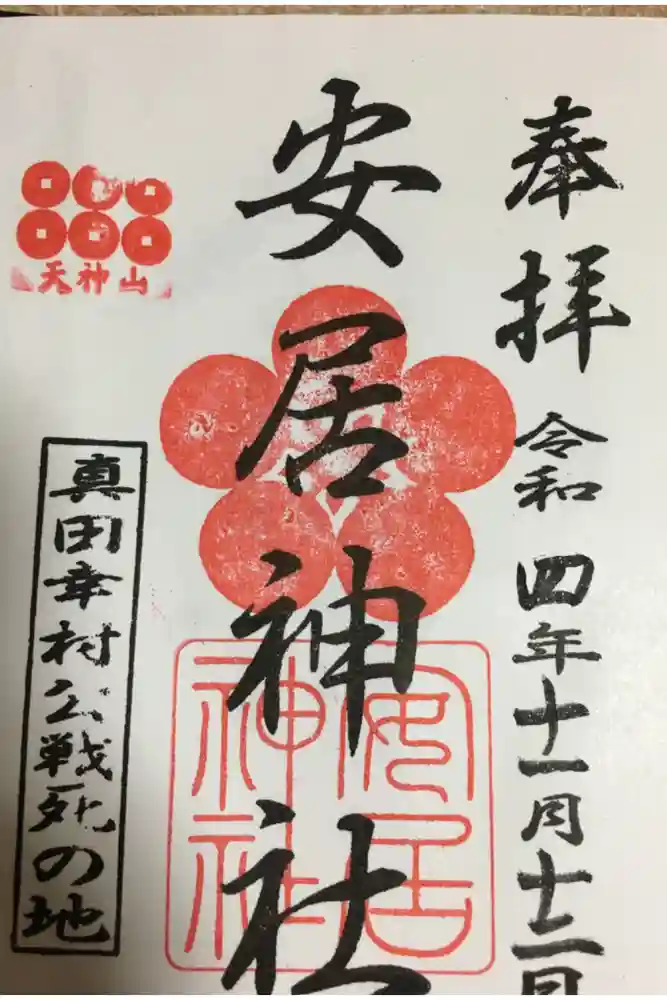 奉拝
令和四年十一月十二日
安居神社
安居神社
天神山
真田幸村公戦死の地